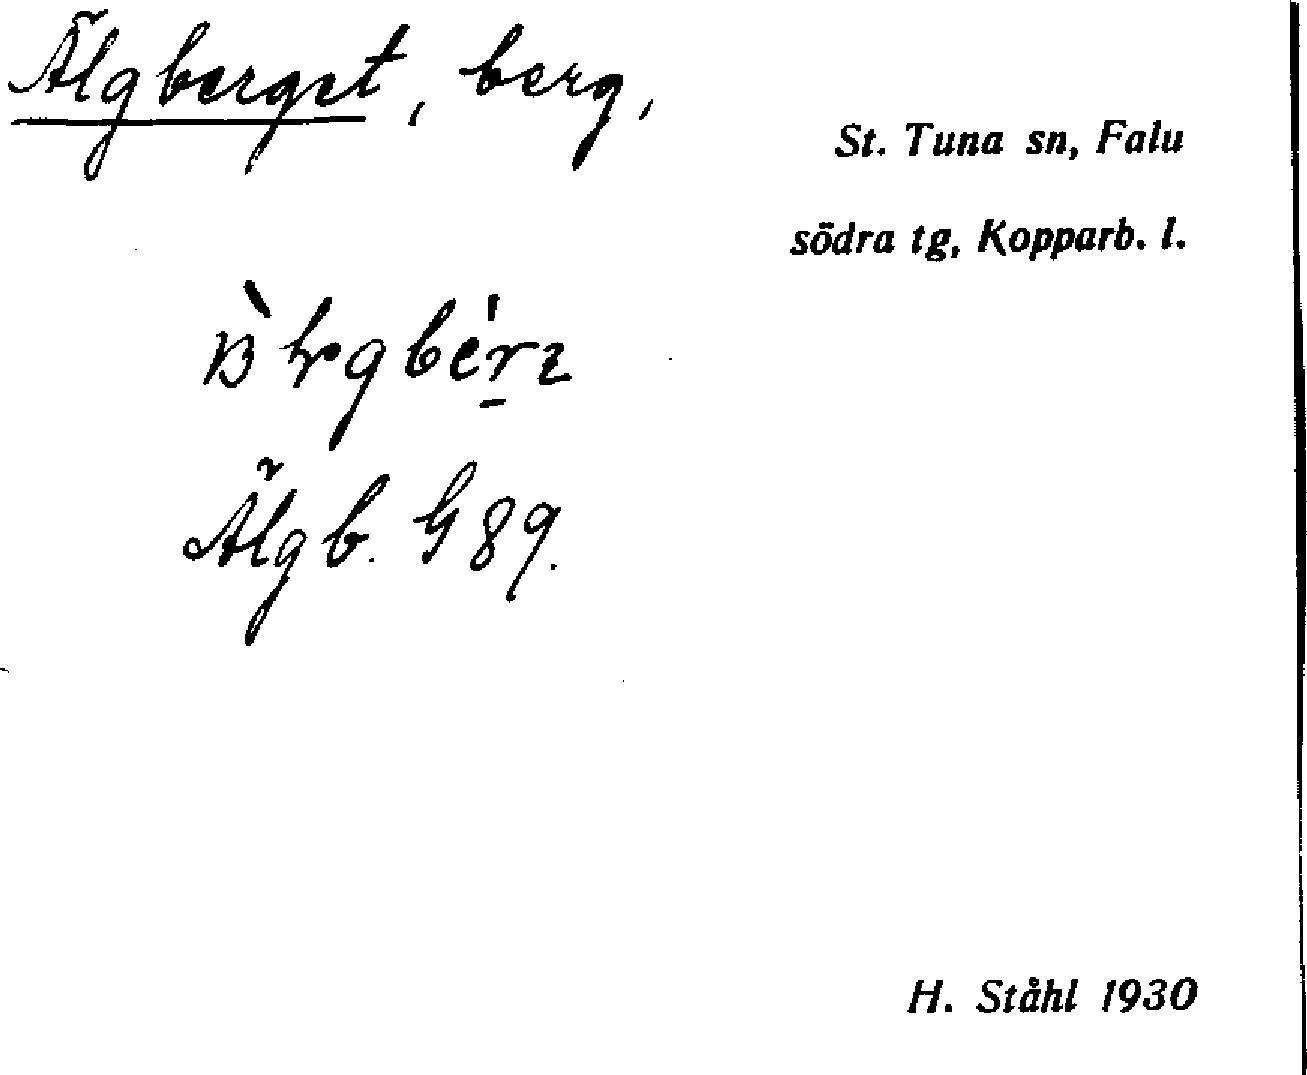 Älgberget, berg,
St. Tuna sn, Falu
södra tg, Kopparb. l.
Älgb. G 89.
H. Ståhl 1930